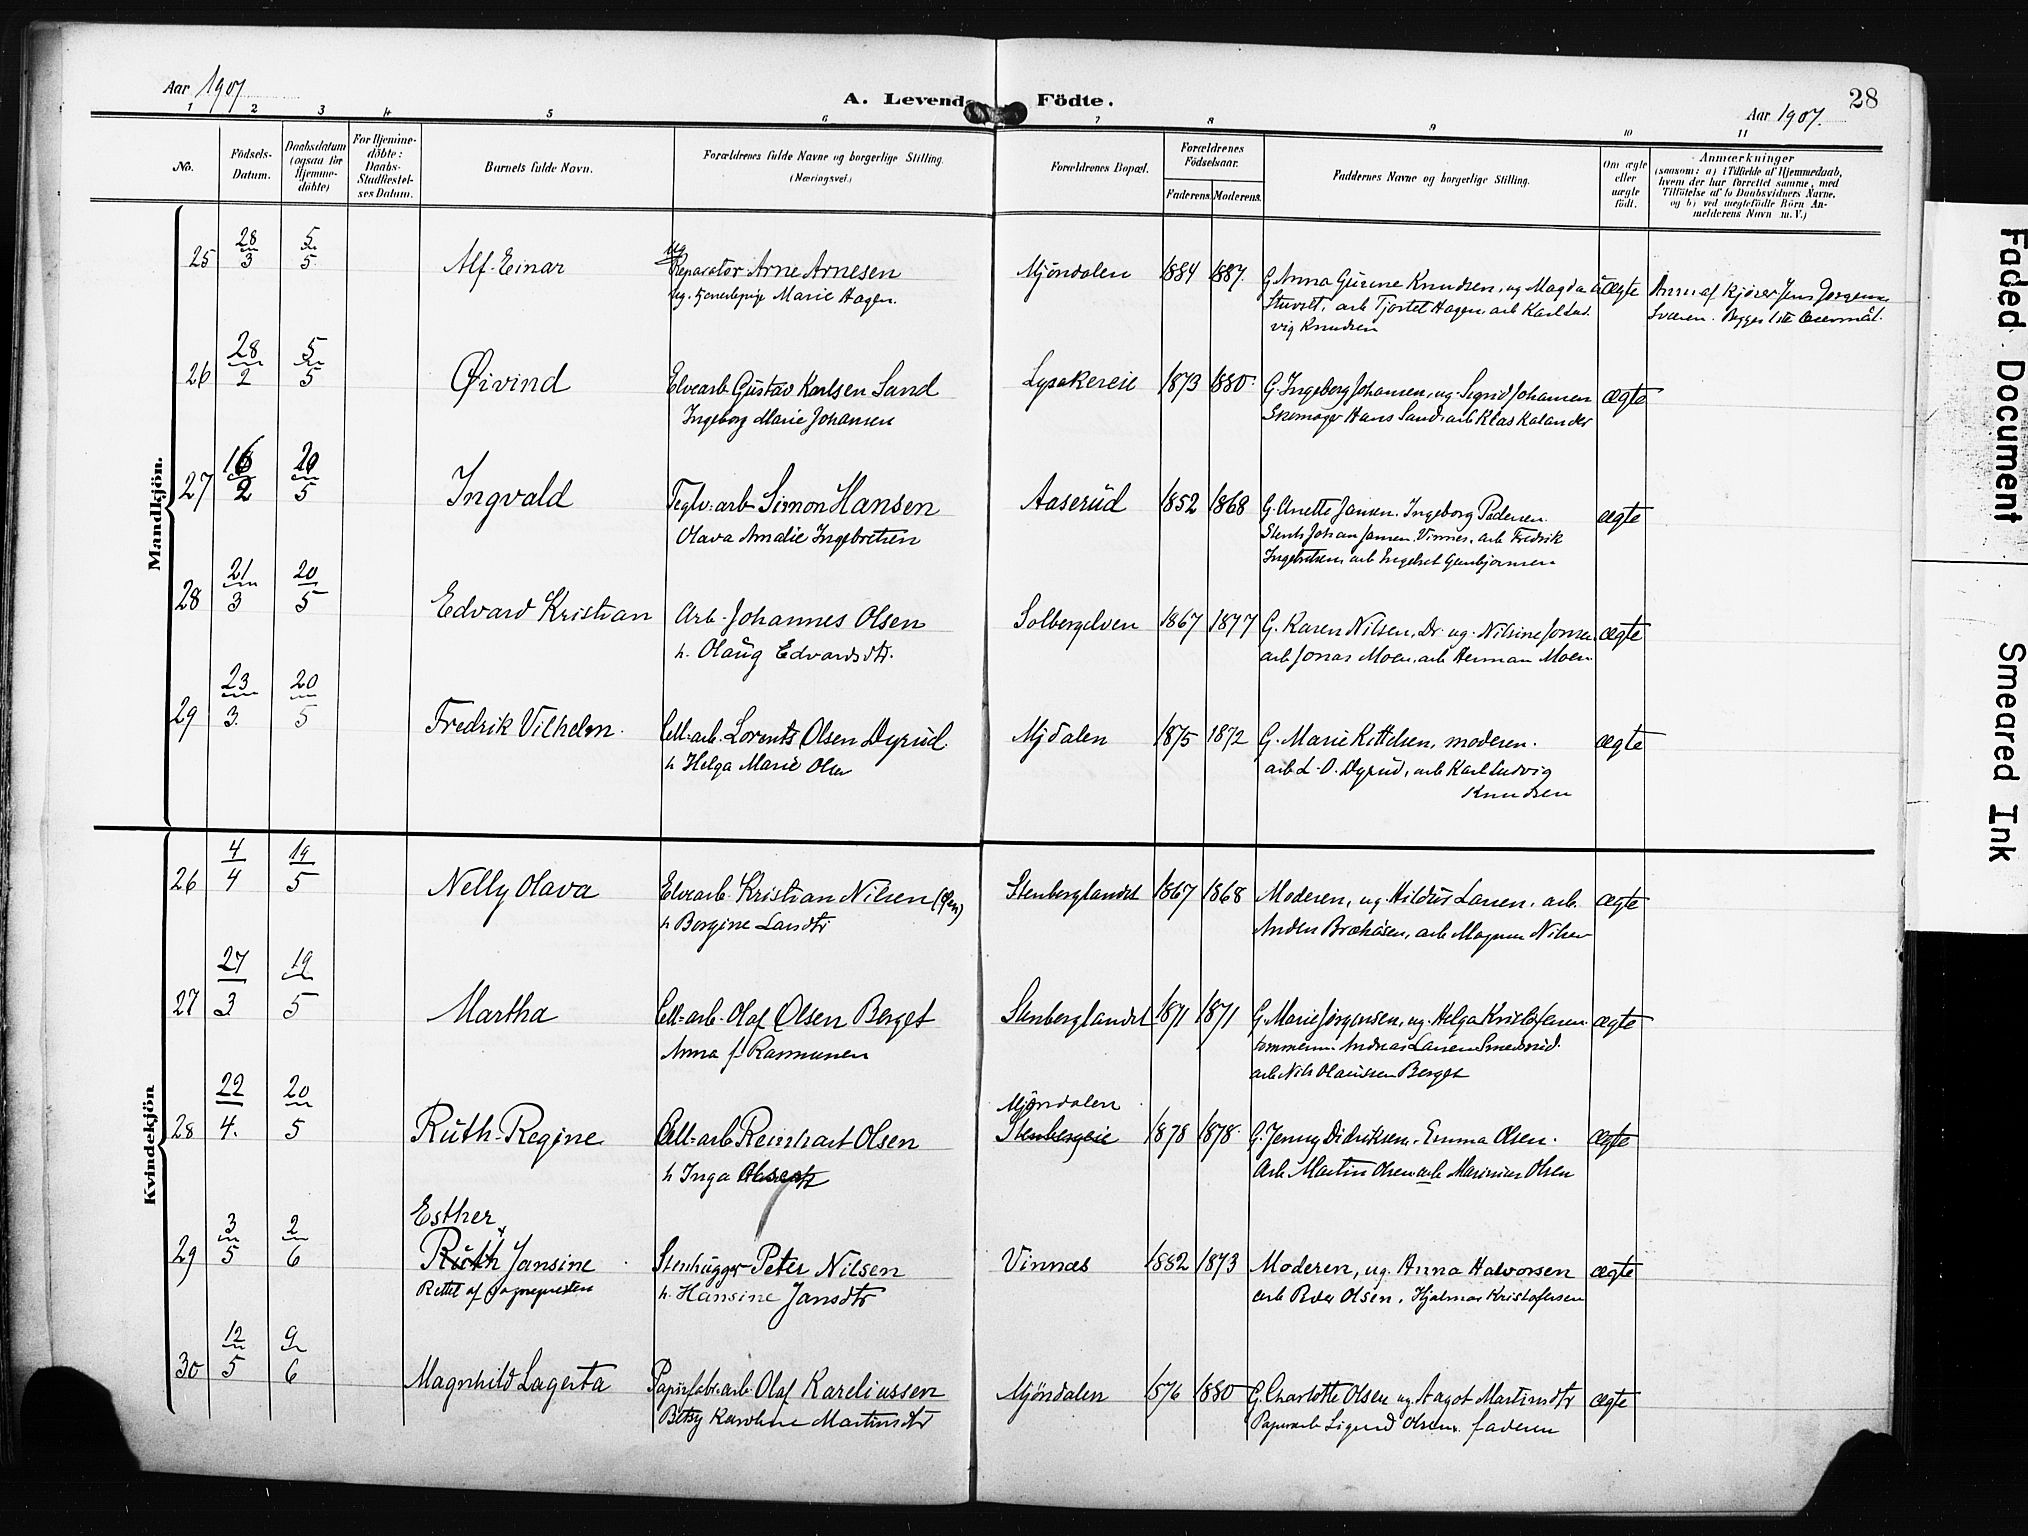 Aar 1907
A. Levende Födte.
Aar 1907.
28
1 2 3 4 5 6 7 8 9 10 11
No.
Födsels-
Datum.
Daabsdatum
(ogsaa for
Hjemme-
döbte)
For Hjemme-
döbte:
Daabs-
Stadfæstel-
ses Datum.
Barnets fulde Navn.
Forældrenes fulde Navne og borgerlige Stilling.
(Næringsvei.)
Forældrenes Bopæl.
Forældrenes
Födselsaar.
Faderens. Moderens.
Faddernes Navne og borgerlige Stilling.
Om ægte
eller
uægte
født.
Anmærkninger
(saasom: a) i Tilfælde af Hjemmedaab,
hvem der har forrettet samme, med
Tilföielse af to Daabsvidners Navne,
og b) ved uegtefödte Börn An-
melderens Navn m.V.)
Mandkjön.
25 28/3 5/5 Alf Einar Reparatør Arne Arnesen Mjöndalen 1884 1887. G. Anna Gurine Knudsen, ug Magda ægte
ug. tjenestepige Marie Hagen. arb Tjostel Hagen, arb Karl Lud-
vig Knudsen
26 28/2 5/5 Øivind Elvearb Gustav Karlsen Sand Lysakereie 1873 1880. G. Ingeborg Johansen, ug. Sigrid Johansen ægte
Ingeborg Marie Johansen Skomager Hans Sand, arb Klas Kalander
27 16/2 20/5 Ingvald Teglv. arb Simon Hansen Aaserud 1852 1868 G. Anette Jansen. Ingeborg Pedersen. ægte
Olava Amalie Ingebretsen Johan Jansen Vinnes, arb Fredrik
Ingebretsen, arb Engebret Gunbjörnsen
28 21/3 20/5 Edvard Kristian Arb. Johannes Olsen Solbergelven 1867 1877 G. Karen Nilsen, Dr. ug. Nilsine ægte
h. Olaug Edvardsdtr. arb Jonas Moen, arb Herman Moen
29 23/3. 20/5 Fredrik Vilhelm. Cell-arb. Lorents Olsen Dyrud. Mjdalen 1875 1872 G. Marie Kittelsen, moderen. ægte
h Helga Marie Olsen arb L. O. Dyrud, arb Karl Ludvig
Knudsen
Kvindekjön
26 4/4 19/5 Nelly Olava Elvearb Kristian Nilsen Stenberglandet 1867 1868 Moderen, ug. Larsen. arb. ægte
h Borgine arb Magnus Nilsen
27 27/3 19/5 Martha Cell-arb. Olaf Olsen Berget Stenberglandet 1871 1871 G. Marie Jörgensen, ug. Helga Kristofersen ægte
Anna f. Rasmussen Andreas Larsen Smedsrud.
arb Nils Olausen Berget
28 22/4. 20/5 Ruth Regine Cell-arb Reinhart Olsen Mjöndalen Stenbergeie 1878 1878. G. Jenny Didriksen, Emma Olsen. ægte
h Inga arb Martin Olsen arb Marinius Olsen
29 3/5 2/6 Esther Ruth Jansine Stenhugger Peter Nilsen Vinnæs 1882 1873 Moderen, ug. Anna Halvorsen ægte
Rettet af Sogneprest­en h. Hansine Jansdtr arb Peder Olsen. Hjalmar Kristofersen
30 12/5 9/6 Magnhild Lagerta Papirfabr. arb Olaf Kareliussen Mjöndalen 1876 1880 G. Charlotte Olsen ug Aagot Martinsdtr ægte
Betsy Karoline Martinsdtr Papirarb Sigurd Olsen. faderen
Faded Document
Smeared Ink